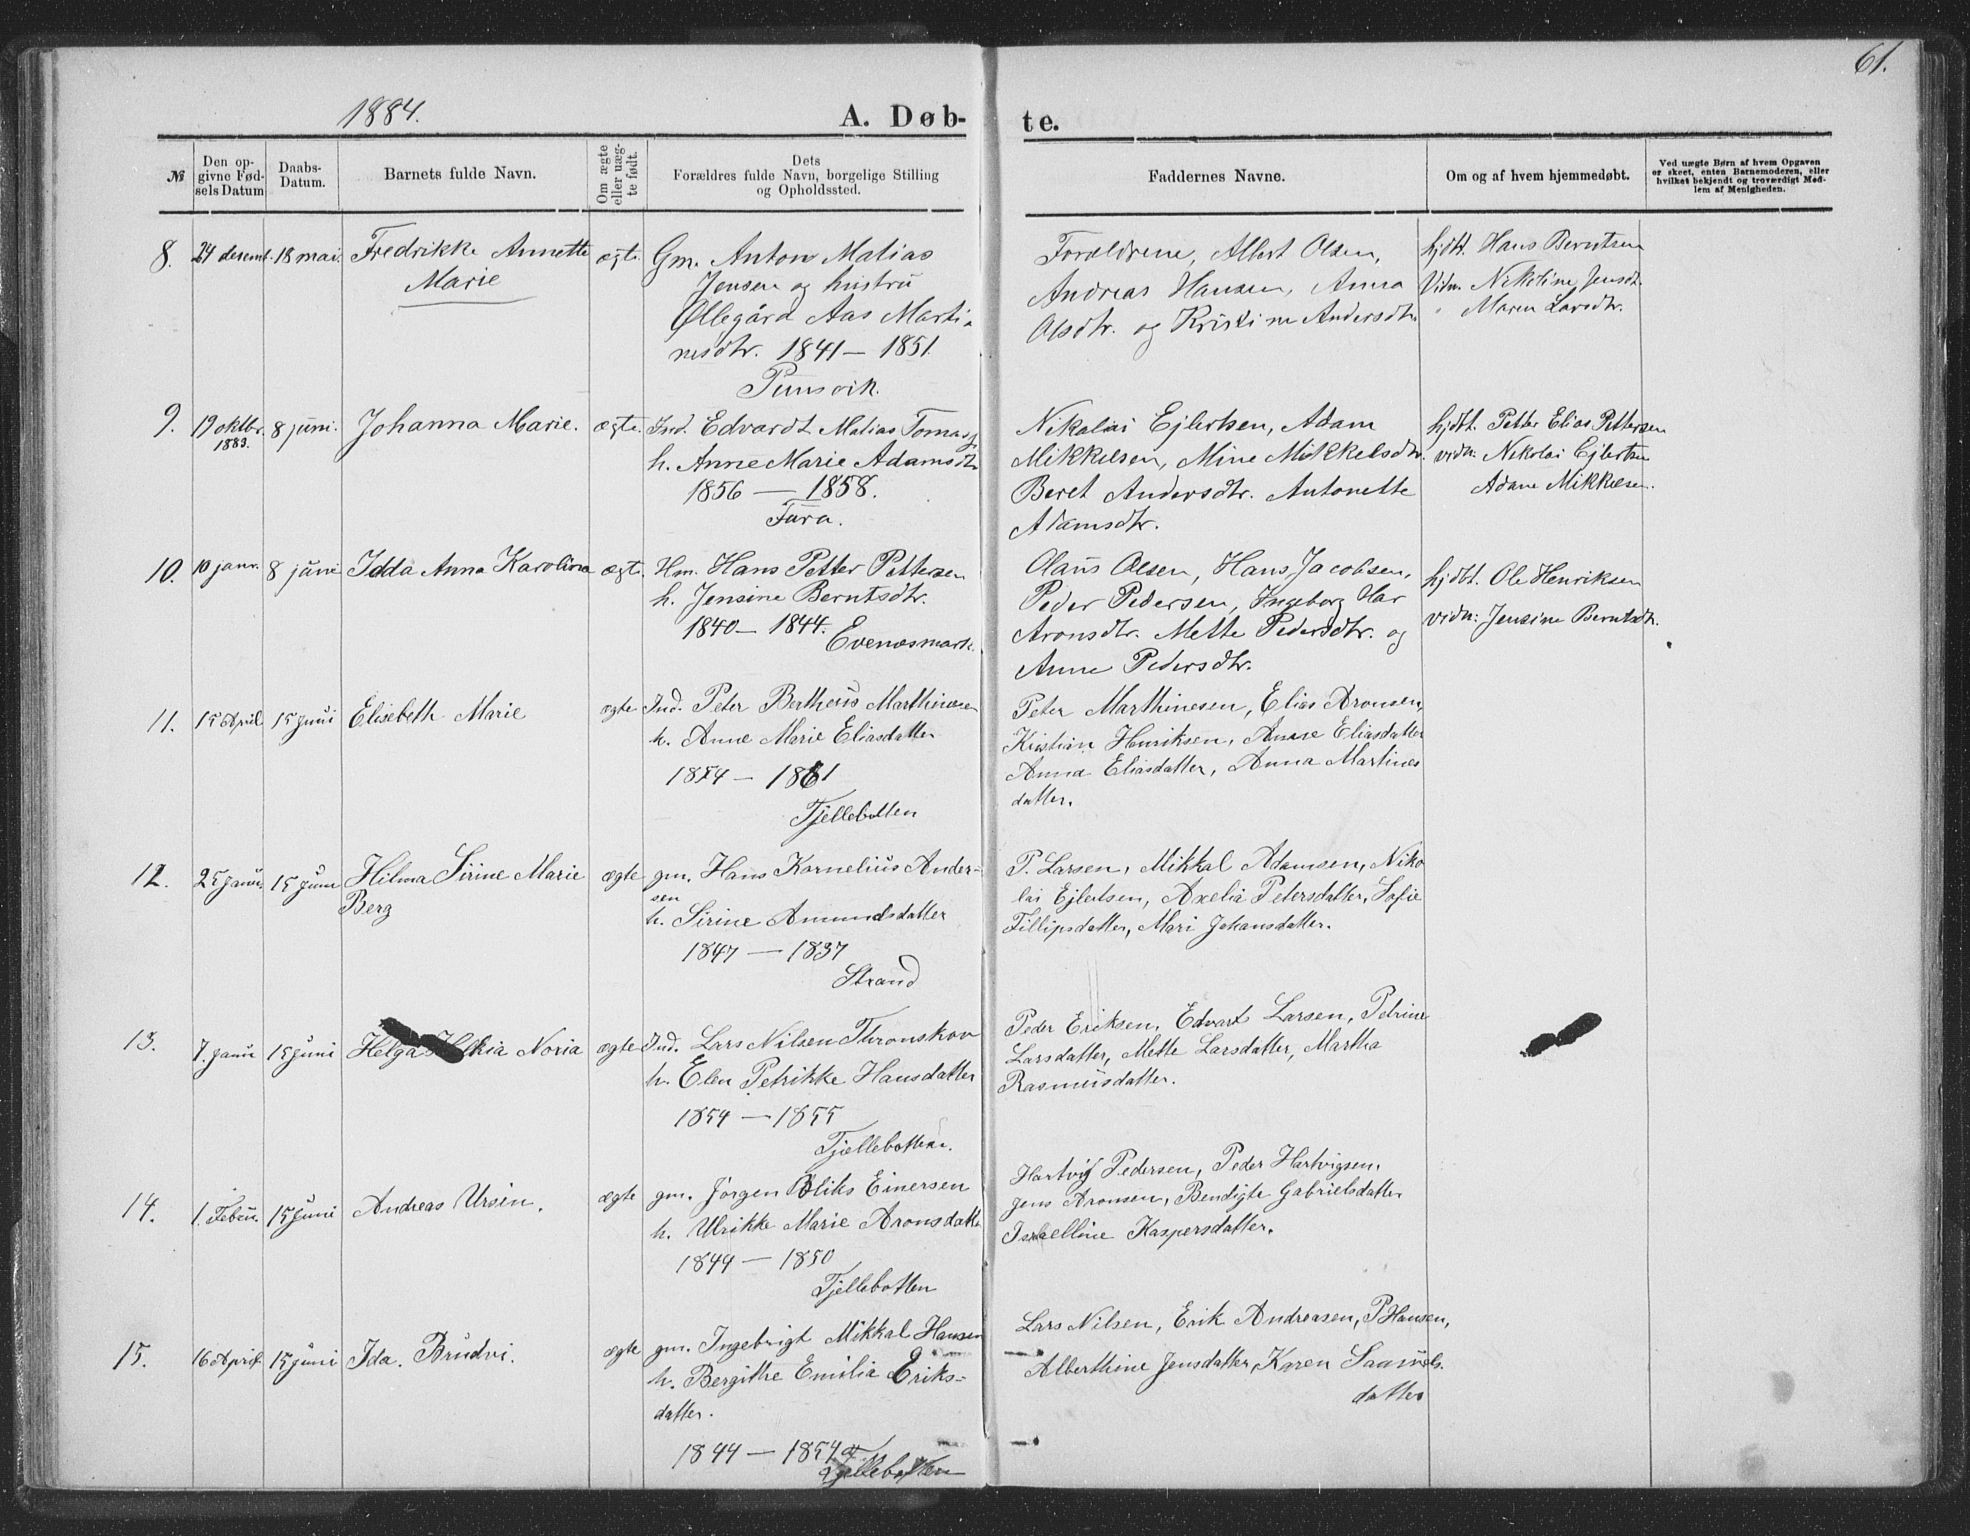 61.
1884.
A. Døb-
te.
№
Den op-
givne Fød-
sels Datum
Daabs-
Datum.
Barnets fulde Navn.
Om ægte
eller uæg-
te født.
Dets
Forældres fulde Navn, borgelige Stilling
og Opholdssted.
Faddernes Navne.
Om og af hvem hjemmedøbt.
Ved uægte Børn af hvem Opgaven
er skeet, enten Barnemoderen, eller
hvilket bekjendt og troværdigt Med-
lem af Menigheden.
8. 24 desemb. 18 mai. Fredrikke Annette ægte. Gm. Anton Matias
Marie
Jensen og hustru
Øllegård Aas Marti-
nesdtr. 1841 — 1851.
Punsvik.
Forældrene, Albert Olsen,
Andreas Hansen, Anna
Olsdtr. og Kristine Andersdtr.
hjdbt. Hans Berntsen
Vidn. Nikoline Jensdt.
" Maren Larsdtr.
9. 19 oktbr. 8 juni. Johanna Marie. ægte. Ind. Edvardt Matias Tomass.
1883.
h. Anne Marie Adamsdtr
1856 — 1858.
Fura.
Nikolai Ejlertsen, Adam
Mikkelsen, Mine Mikkelsdtr.
Beret Andersdtr. Antonette
Adamsdtr.
hjdbt. Petter Elias Pettersen
vidn: Nikolai Ejlertsen
Adam Mikkelsen.
10. 10 janv. 8 juni Idda Anna Karolina ægte Hm. Hans Petter Pettersen
h. Jensine Berntsdtr.
1840 — 1844.
Evenæsmark.
Olaus Olsen, Hans Jacobsen,
Peder Pedersen, Ingeborg Mar
Aronsdtr. Mette Pedersdtr. og
Anne Pedersdtr.
hjdbt. Ole Henriksen
vidn: Jensine Berntsdtr.
11. 15 April 15 juni Elisebeth Marie ægte Ind. Peter Bertheus Marthinesen
h. Anne Marie Eliasdatter
1854 — 1861
Tjellebotten
Peter Marthinesen, Elias Aronsen,
Kristian Henriksen, Anne Eliasdatter
Anna Eliasdatter, Anna Martines
datter.
12. 25 janu. 15 juni Hilma Sirine Marie ægte gm. Hans Kornelius Ander-
Berg
sen
h. Sirine Amundsdatter
1847 — 1837
Strand
P. Larsen, Mikkal Adamsen, Niko
lai Ejlertsen, Axelia Petersdatter, Sofie
Fillipsdatter, Mari Johansdatter.
13. 7. janu 15 juni Helga Noria ægte Ind. Lars Nilsen Thronskov
h. Elen Petrikke Hansdatter
1854 — 1855
Tjellebotten.
Peder Eriksen, Edvart Larsen, Petrine
Larsdatter, Mette Larsdatter, Martha
Rasmusdatter.
14. 1. Febru. 15 juni Andreas Ursin. ægte gm. Jörgen Bliks Einersen
h. Ulrikke Marie Aronsdatte
1844 — 1850
Tjellebotten
Hartvig Pedersen, Peder Hartvigsen,
Jens Aronsen, Bendigte Gabrielsdatter
Israelline Kaspersdatter.
15. 16 April. 15 juni Ida. Brudvi. ægte gm. Ingebrigt Mikkal Hansen
h. Bergithe Emilia Eriks-
datter.
1844 — 1854
Tjellebotten
Lars Nilsen, Erik Andreasen, P Hansen,
Alberthine Jensdatter, Karen Samuels.
datter